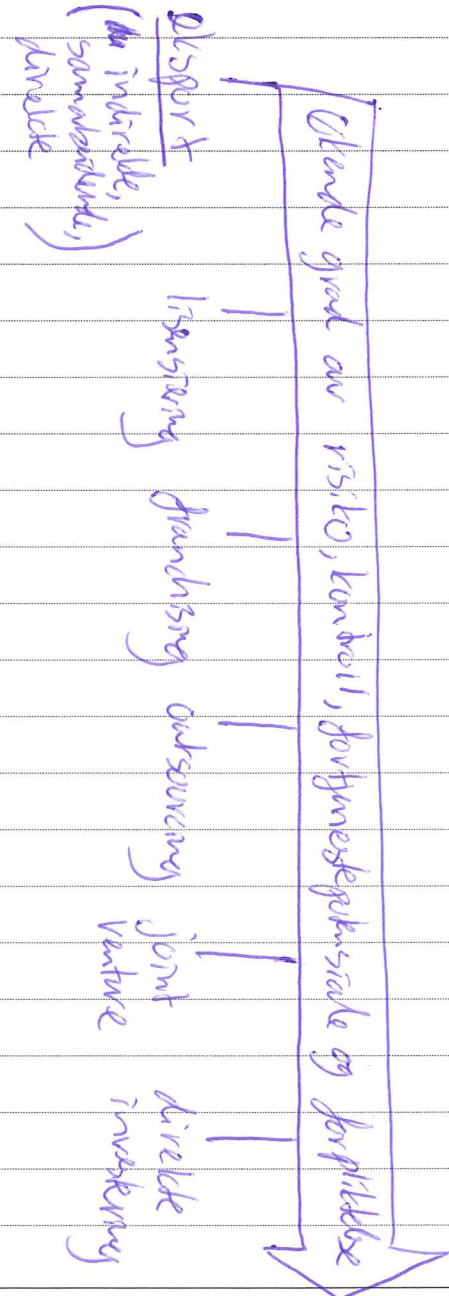 Økende grad av risiko, kontroll, fortjenestepotensiale og forpliktelse
eksport
(indirekte,
samarbeidende,
direkte)
lisensiering
franchising
outsourcing
joint
venture
direkte
investering